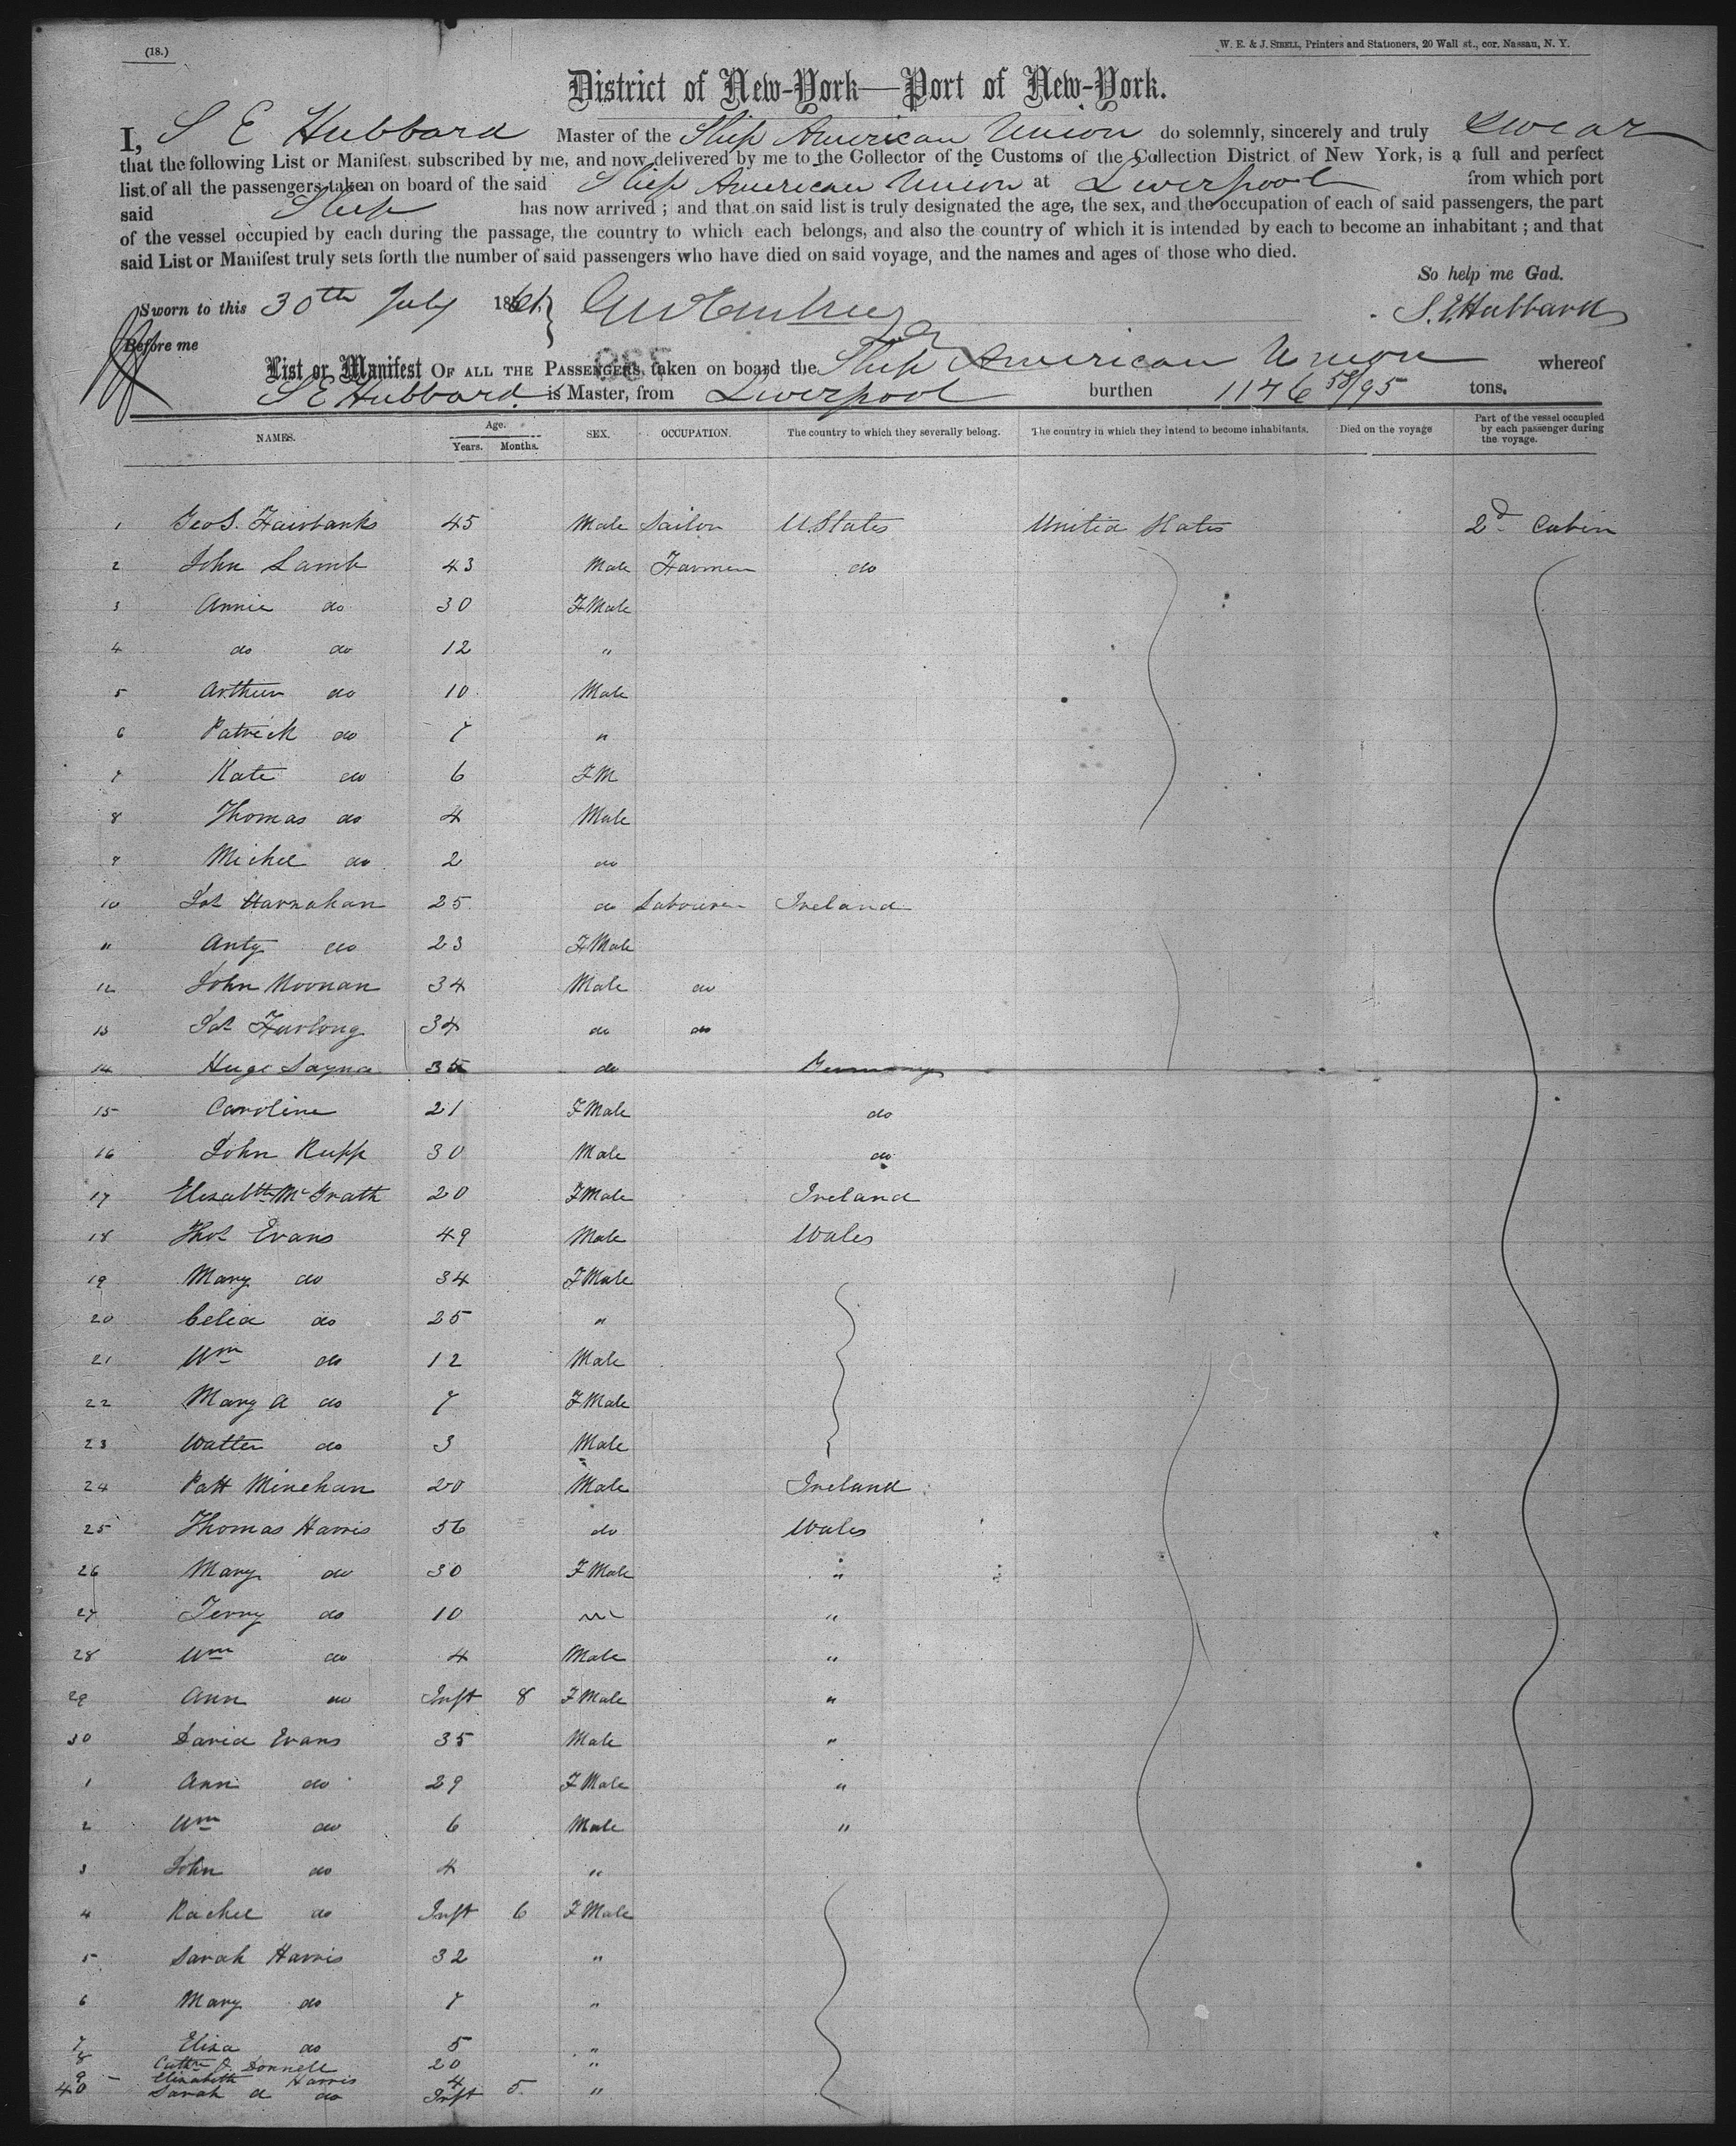 (18.)
W. E. & J. SIBELL, Printers and Stationers, 20 Wall st., cor. Nassau, N. Y.
District of New-York—Port of New-York.
I, S E Hubbard Master of the Ship American Union do solemnly, sincerely and truly swear
that the following List or Manifest, subscribed by me, and now delivered by me to the Collector of the Customs of the Collection District of New York, is a full and perfect
list of all the passengers taken on board of the said Ship American Union at Liverpool from which port
said Ship has now arrived ; and that on said list is truly designated the age, the sex, and the occupation of each of said passengers, the part
of the vessel occupied by each during the passage, the country to which each belongs, and also the country of which it is intended by each to become an inhabitant ; and that
said List or Manifest truly sets forth the number of said passengers who have died on said voyage, and the names and ages of those who died.
So help me God.
Sworn to this 30th July 1861. S. E. Hubbard
Before me
List or Manifest OF ALL THE PASSENGERS, taken on board the Ship American Union whereof
S E Hubbard is Master, from Liverpool burthen 1146 58/95 tons.
NAMES. Age. Years. Months. SEX. OCCUPATION. The country to which they severally belong. The country in which they intend to become inhabitants. Died on the voyage Part of the vessel occupied by each passenger during the voyage.
1 Geo S. Fairbanks 45 Male Sailor U. States United States 2d Cabin
2 John Lamb 43 Male Farmer do
3 Annie do 30 FMale
4 do do 12 "
5 Arthur do 10 Male
6 Patrick do 7 "
7 Kate do 6 FM
8 Thomas do 4 Male
9 Michel do 2 do
10 Pat Harnahan 25 do Labourer Ireland
11 Anty do 23 FMale
12 John Noonan 34 Male do
13 Pat Furlong 34 do do
14 Huge Sayna 35 do Germany
15 Caroline 21 FMale do
16 John Rupp 30 Male do
17 Elizabth McGrath 20 FMale Ireland
18 Thos Evans 49 Male Wales
19 Mary do 34 FMale
20 Celia do 25 "
21 Wm do 12 Male
22 Mary A do 7 FMale
23 Walter do 3 Male
24 Patt Minehan 20 Male Ireland
25 Thomas Harris 36 do Wales
26 Mary do 30 FMale "
27 Jenny do 10 "
28 Wm do 4 Male "
29 Ann do Inft 8 FMale "
30 David Evans 35 Male "
1 Ann do 29 FMale "
2 Wm do 6 Male "
3 John do 4 "
4 Rachel do Inft 6 FMale
5 Sarah Harris 32 "
6 Mary do 7 "
7 Eliza do 5 "
8 Cathne O Donnell 20 "
9 Elizabeth Harris 4
40 Sarah A do Inft 5 "